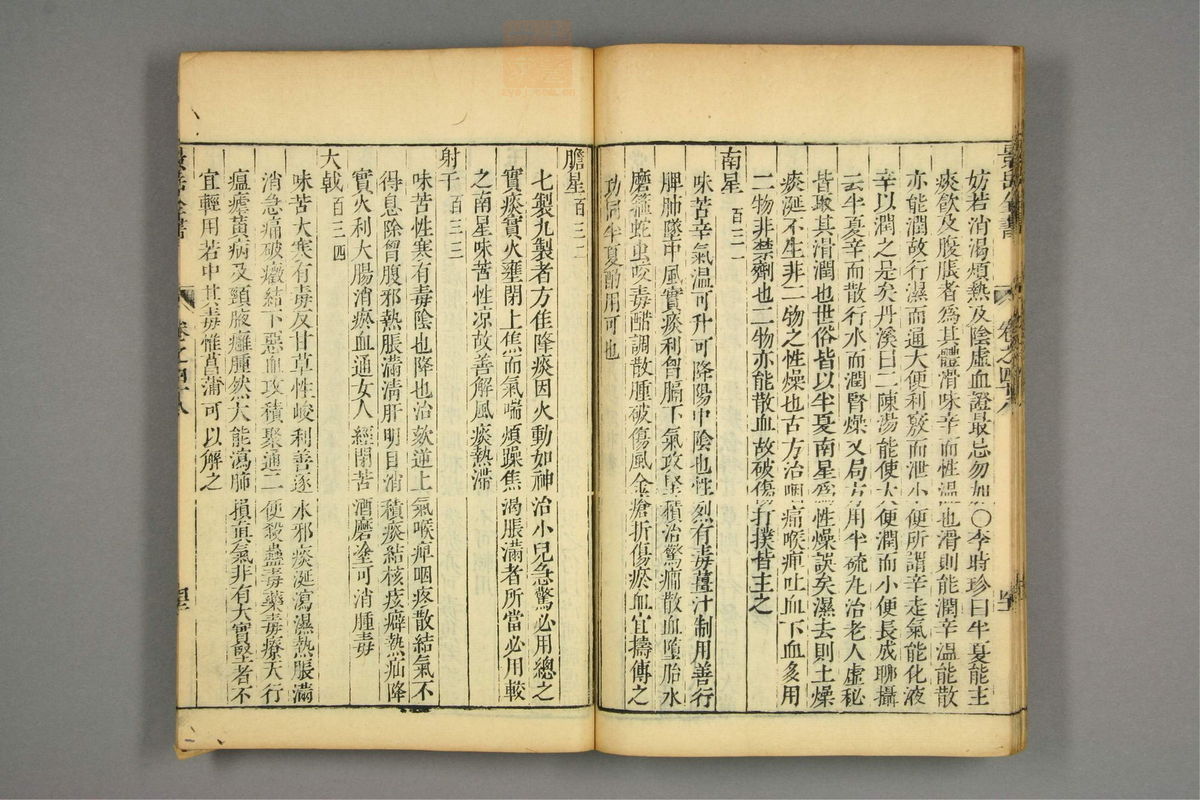 妨若消渴煩熱及陰虛血證最忌勿加〇李時珍曰半夏能主
痰飲及腹脹者為其體滑味辛而性温也滑則能潤辛温能散
亦能潤故行濕而通大便利竅而泄小便所謂辛走氣能化液
辛以潤之是矣丹溪曰二陳湯能使大便潤而小便長成聊攝
云半夏辛而散行水而潤腎燥又局方用半硫丸治老人虛秘
皆取其滑潤也世俗皆以半夏南星為性燥誤矣濕去則土燥
痰涎不生非二物之性燥也古方治咽痛喉痺吐血下血多用
二物非禁劑也二物亦能散血故破傷打撲皆主之
南星 百三一
味苦辛氣温可升可降陽中陰也性烈有毒薑汁制用善行
脾肺墜中風實痰利胷膈下氣攻堅積治驚癎散血墮胎水
磨箍蛇虫咬毒醋調散腫破傷風金瘡折傷瘀血宜擣傅之
功同半夏酌用可也
景岳全書
卷之四十八
膽星 百三二
七製九製者方佳降痰因火動如神治小兒急驚必用總之
實痰實火壅閉上焦而氣喘煩躁焦渴脹滿者所當必用較
之南星味苦性凉故善解風痰熱滯
射干 百三三
味苦性寒有毒陰也降也治欬逆上氣喉痺咽疼散結氣不
得息除胷腹邪熱脹滿清肝明目消積痰結核痃癖熱疝降
實火利大腸消瘀血通女人經閉苦酒磨塗可消腫毒
大戟 百三四
味苦大寒有毒反甘草性峻利善逐水邪痰涎瀉濕熱脹滿
消急痛破癥結下惡血攻積聚通二便殺蠱毒藥毒療天行
瘟瘧黃病及頸腋癰腫然大能瀉肺損真氣非有大實堅者不
宜輕用若中其毒惟菖蒲可以解之
景岳全書
卷之四十八